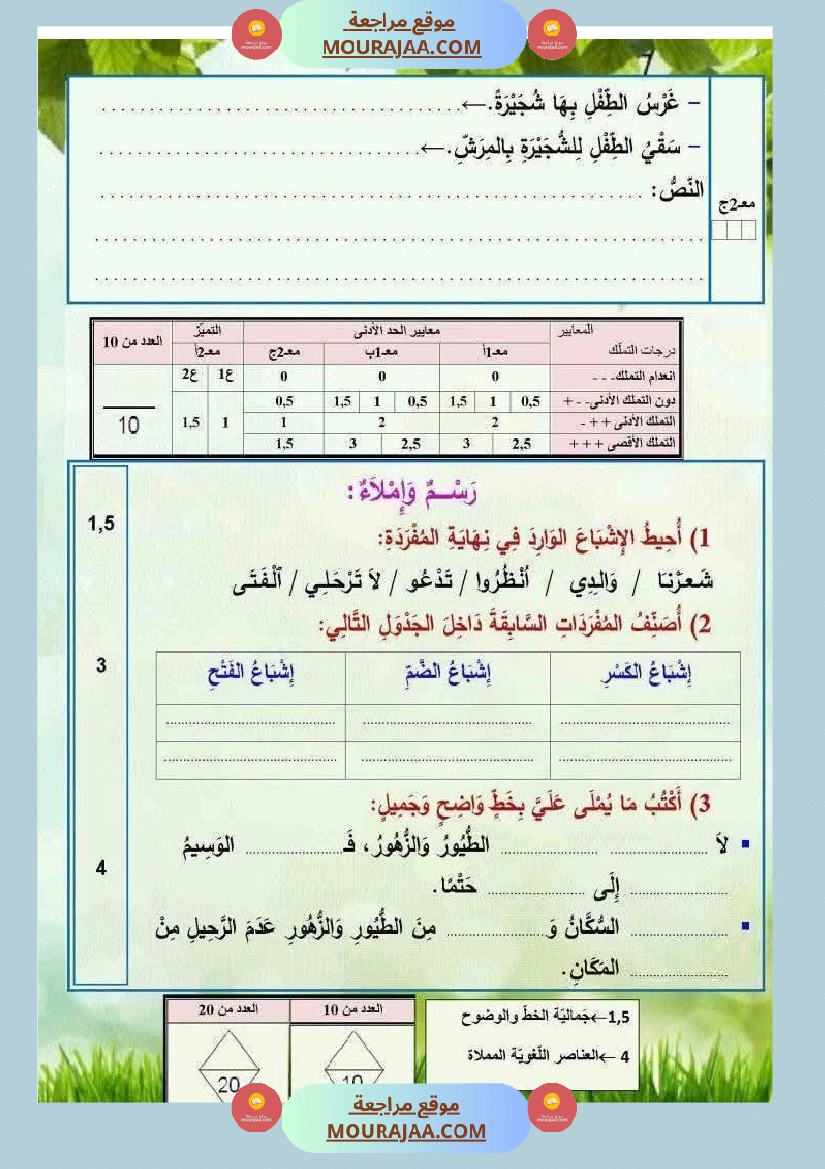 موقع مراجعة
MOURAJAA.COM
– غَرْسُ الطِّفْلِ بِهَا شُجَيْرَةً.←......................................
– سَقْيُ الطِّفْلِ لِلشُّجَيْرَةِ بِالمِرَشِّ.←..................................
معـ2ج
النّصُّ: .........................................................
................................................................
................................................................
المعايير معايير الحد الأدنى التميّز العدد من 10
درجات التملّك معـ1أ معـ1ب معـ2ج معـ2أ
انعدام التملك- - - 0 0 0 ع1 ع2
دون التملك الأدنى- - + 0,5 1 1,5 0,5 1 1,5 0,5
التملك الأدنى + + - 2 2 1 1 1,5
التملك الأقصى + + + 2,5 3 2,5 3 1,5
10
رَسْـــمٌ وَإِمْـلاَءٌ :
1) أُحِيطُ الإِشْبَاعَ الوَارِدَ فِي نِهَايَةِ المُفْرَدَةِ:
1,5
شَـعـَرْنـَا / وَالـِدِي / اُنْـظُـرُوا / تَـدْعُـو / لاَ تَـرْحَـلـِي / اَلْـفَـتَـى
2) أُصَنِّفُ المُفْرَدَاتِ السَّابِقَةَ دَاخِلَ الجَدْوَلِ التَّالِي:
3
إِشْبَاعُ الكَسْرِ إِشْبَاعُ الضَّمِّ إِشْبَاعُ الفَتْحِ
.............................. .............................. ..............................
.............................. .............................. ..............................
3) أَكْتُبُ مَا يُمْلَى عَلَيَّ بِخَطٍّ وَاضِحٍ وَجَمِيلٍ:
4
▪ لاَ .................... .................... الطُّيُورُ وَالزُّهُورُ، فَـ.................... الوَسِيمُ
.................... إِلَى .................... حَتْمًا.
▪ .................... السُّكَّانُ وَ .................... مِنَ الطُّيُورِ وَالزُّهُورِ عَدَمَ الرَّحِيلِ مِنْ
.................... المَكَانِ.
1,5←جَماليّة الخطّ والوضوح
4 ←العناصر اللّغويّة المملاة
العدد من 10 العدد من 20
10 20
موقع مراجعة
MOURAJAA.COM